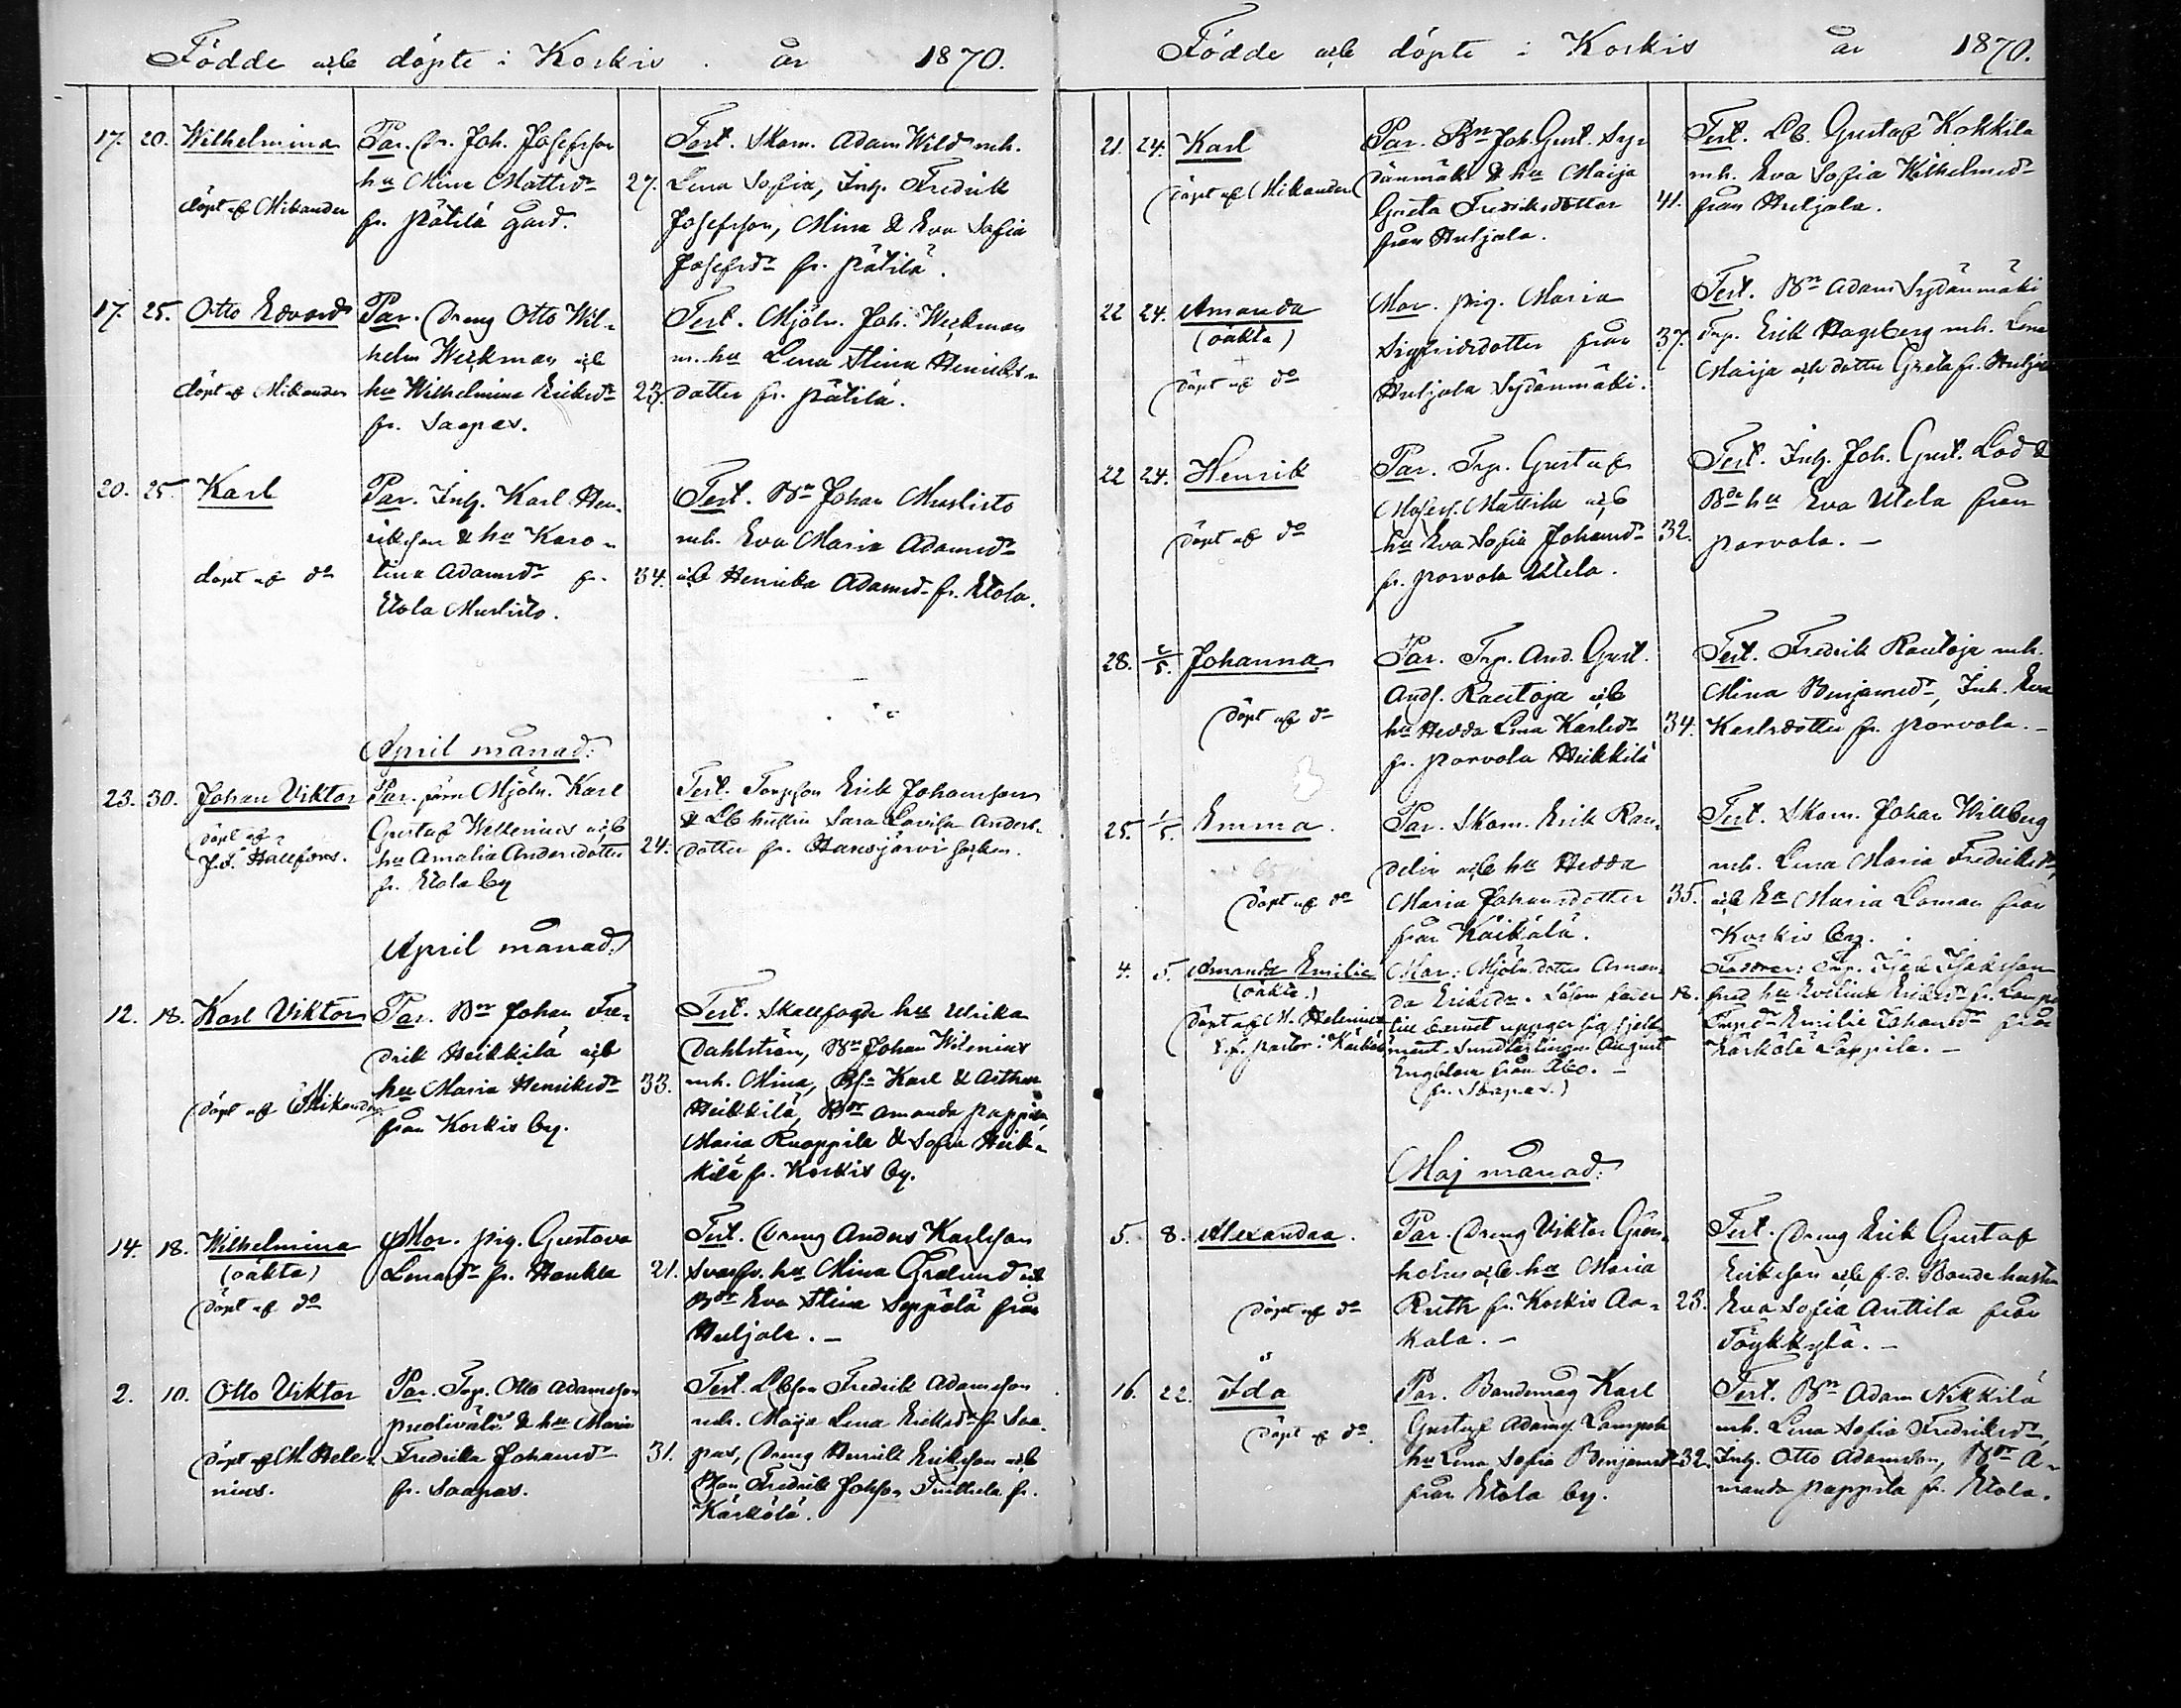 Födde och döpte i Koskis. år 1870.
17. 20. Wilhelmina
döpt af Mikander
Par. Dr. Joh. Josefsson
hu Mina Mattsdr
fr. Pätilä gård.
27.
Test. Skom. Adam Wild mh.
Lena Sofia, Inh. Fredrik
Josefsson, Mina & Eva Sofia
Josefsdr fr. Pätilä.
17. 25. Otto Edvard
döpt af Mikander
Par. Dreng Otto Wil-
helm Weckman och
hu Wilhelmina Eriksdr
fr. Saapas.
23.
Test. Mjöln. Joh. Weckman
m. hu Lena Stina Henriks-
dotter fr. Pätilä.
20. 25. Karl
döpt af do
Par. Inh. Karl Hen-
riksson & hu Karo-
lina Adamsdr fr.
Etola Muslisto.
34.
Test. Bn Johan Muslisto
mh. Eva Maria Adamsdr
och Henrika Adamsd. fr. Etola.
April månad:
23. 30. Johan Viktor
döpt af
J.F. Hällfors.
Par. Mjöln. Karl
Gustaf Wellenius och
hu Amalia Andersdotter
fr. Etola by
24.
Test. Torpson Erik Johansson
& Lb hustru Sara Lovisa Anders-
dotter fr. Hansjärvi
April månad:
12. 18. Karl Viktor
döpt af Mikander
Par. Bn Johan Fre-
drik Heikkilä och
hu Maria Henriksdr
från Koskis by.
33.
Test. Skallfogde hu Ulrika
Dahlström, Bn Johan Wilenius
mh. Mina, Bs. Karl & Arthur
Heikkilä, Bdr Amanda Pappila,
Maria Knappila & Sofia Heik-
kilä fr. Koskis by.
14. 18. Wilhelmina
(oäkta)
döpt af do
Mor. Pig. Gustava
Lenasdr fr. Haukla
21.
Test. Dreng Anders Karlsson
hu Mina Grolund och
Bdr Eva Stina Seppälä från
Huljala. –
2. 10. Otto Viktor
döpt af M. Hele-
nius.
Par. Trp. Otto Adamsson
& hu Maria
Fredrika Johansdr
fr. Saapas.
31.
Test. Lbson Fredrik Adamsson
mh. Maija Lena Eriksdr fr. Saa-
pas, Dreng Henrik Eriksson och
Fredrik fr.
Kärkölä.
Födde och döpte i Koskis år 1870.
21. 24. Karl
döpt af Mikander
Par. Bn Joh. Gust. Sy-
dänmäki & hu Maija
Greta Fredriksdotter
från Huljala.
41.
Test. Lb. Gustaf Kokkila
mh. Eva Sofia Wilhelmsdr
från Huljala.
22 24. Amanda
(oäkta)
+
döpt af do
Mor. Pig. Maria
Sigfridsdotter från
Huljala Sydänmäki.
37.
Test. Bn Adam Sydänmäki
Trp. Erik Hagsberg mh. Lena
Maija och dotter Greta fr. Huljala
22 24. Henrik
döpt af do
Par. Trp. Gustaf
Mattila och
hu Eva Sofia Johansdr
fr. Porvola Utela.
32.
Test. Inh. Joh. Gust. Lod &
Bde hu Eva Utela från
Porvola. –
28. 2/5. Johanna
döpt af do
Par. Trp. And. Gust.
Ands. Rautoja och
hu Hedda Lena Karlsdr
fr. Porvola Heikkilä
34.
Test. Fredrik Rautoja mh.
Mina Benjamsdr, Inh. Eva
Karlsdotter fr. Porvola. –
25. 1/5. Emma.
döpt af do
Par. Skom. Erik Ran-
delin och hu Hedda
Maria Johansdotter
från Käikälä.
35.
Test. Skom. Johan Willberg
mh. Lena Maria Fredriksdr,
och Maria Loman från
Koskis by.
4. 5. Amanda Emilia
(oäkta.)
döpt af M. Helenius
v. pastor i Kärkölä
Mor: Mjöln. dotter Aman-
da Eriksdr. Såsom fader
till barnet uppger sig
August
Engblom från Åbo. –
(fr. Saapas.)
18.
Faddrar: Trp.
hu Evelina Eriksdr fr.
Emilie Johansdr från
Kärkölä Lappila. –
Maj månad:
5. 8. Alexandra.
döpt af do
Par. Dreng Viktor Grön-
holm och hu Maria
Ruth fr. Koskis Aa-
kala. –
23.
Test. Dreng Erik Gustaf
Eriksson och f.d. Bonde hustru
Eva Sofia Anttila från
Töykkylä. –
16. 22. Ida
döpt af do.
Par. Bondemåg Karl
Gustaf Adams. Lampola
hu Lena Sofia Benjamsdr
från Etola by.
32.
Test. Bn Adam Nikkilä
mh. Lena Sofia Fredriksdr,
Inh. Otto Adamsson, Bdr A-
manda Pappila fr. Etola.